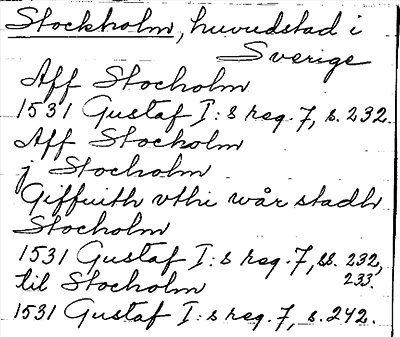 Stockholm, huvudstad i
Sverige
Aff Stocholm
1531 Gustaf I:s reg. 7, s. 232.
Aff Stocholm
j Stocholm
Giffuith vthi wår stadh
Stocholm
1531 Gustaf I:s reg. 7, ss. 232,
233.
til Stocholm
1531 Gustaf I:s reg. 7, s. 242.